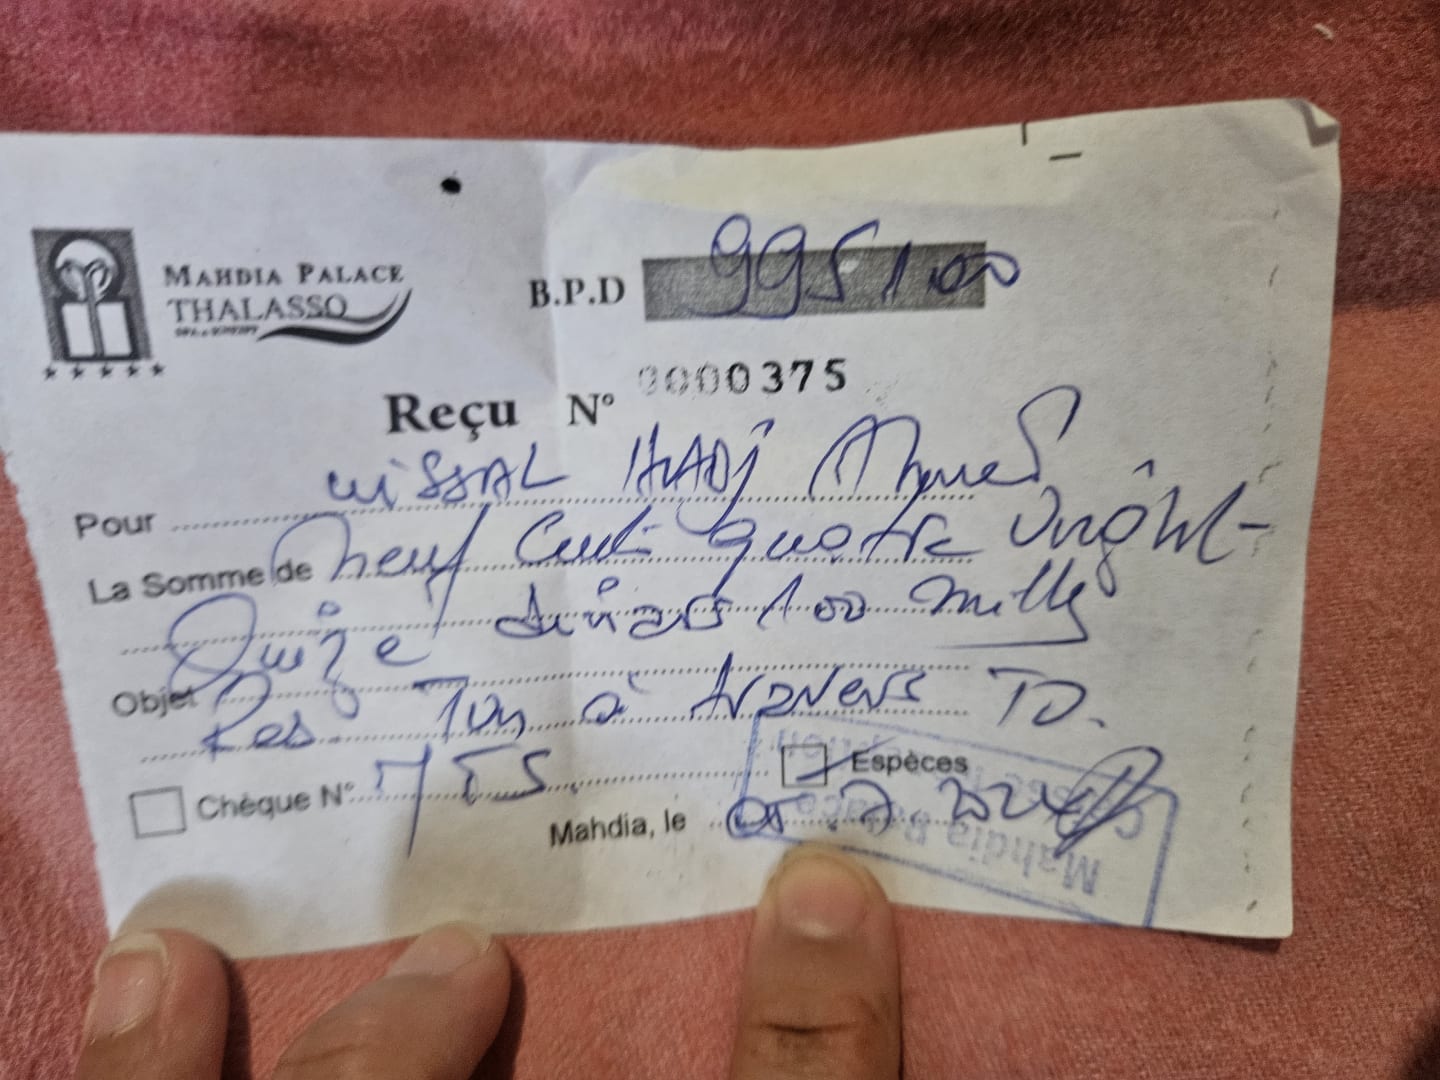 MAHDIA PALACE
THALASSO
B.P.D 995,100
Reçu N° 0000375
Pour WiSSAL HADJ Ahmed
La Somme de Neuf Cent quatre Vinght-
Quize dinars 100 mills
Objet
Res. à travers TO.
Chèque N° Espèces
Mahdia, le
Mahdia Palace